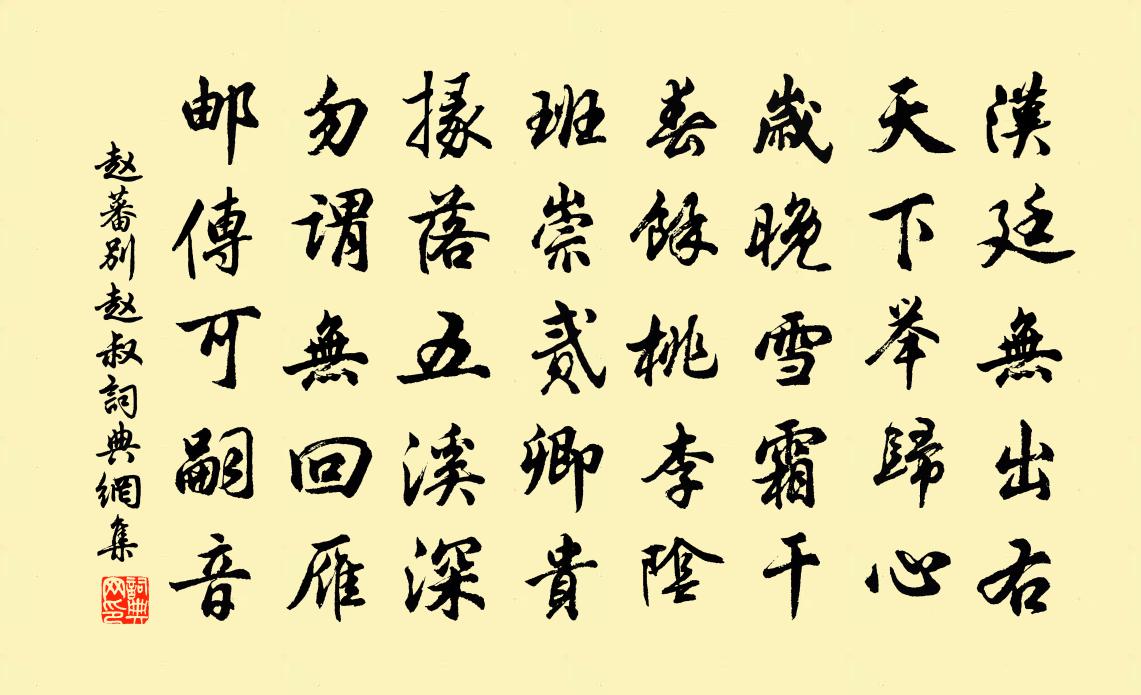 漢廷無出右
天下举歸心
歲晚雪霜干
春餘桃李陰
班崇貳卿貴
掾落五溪深
勿謂無回雁
邮傳可嗣音
赵蕃别赵叔詞典網集
詞典网印